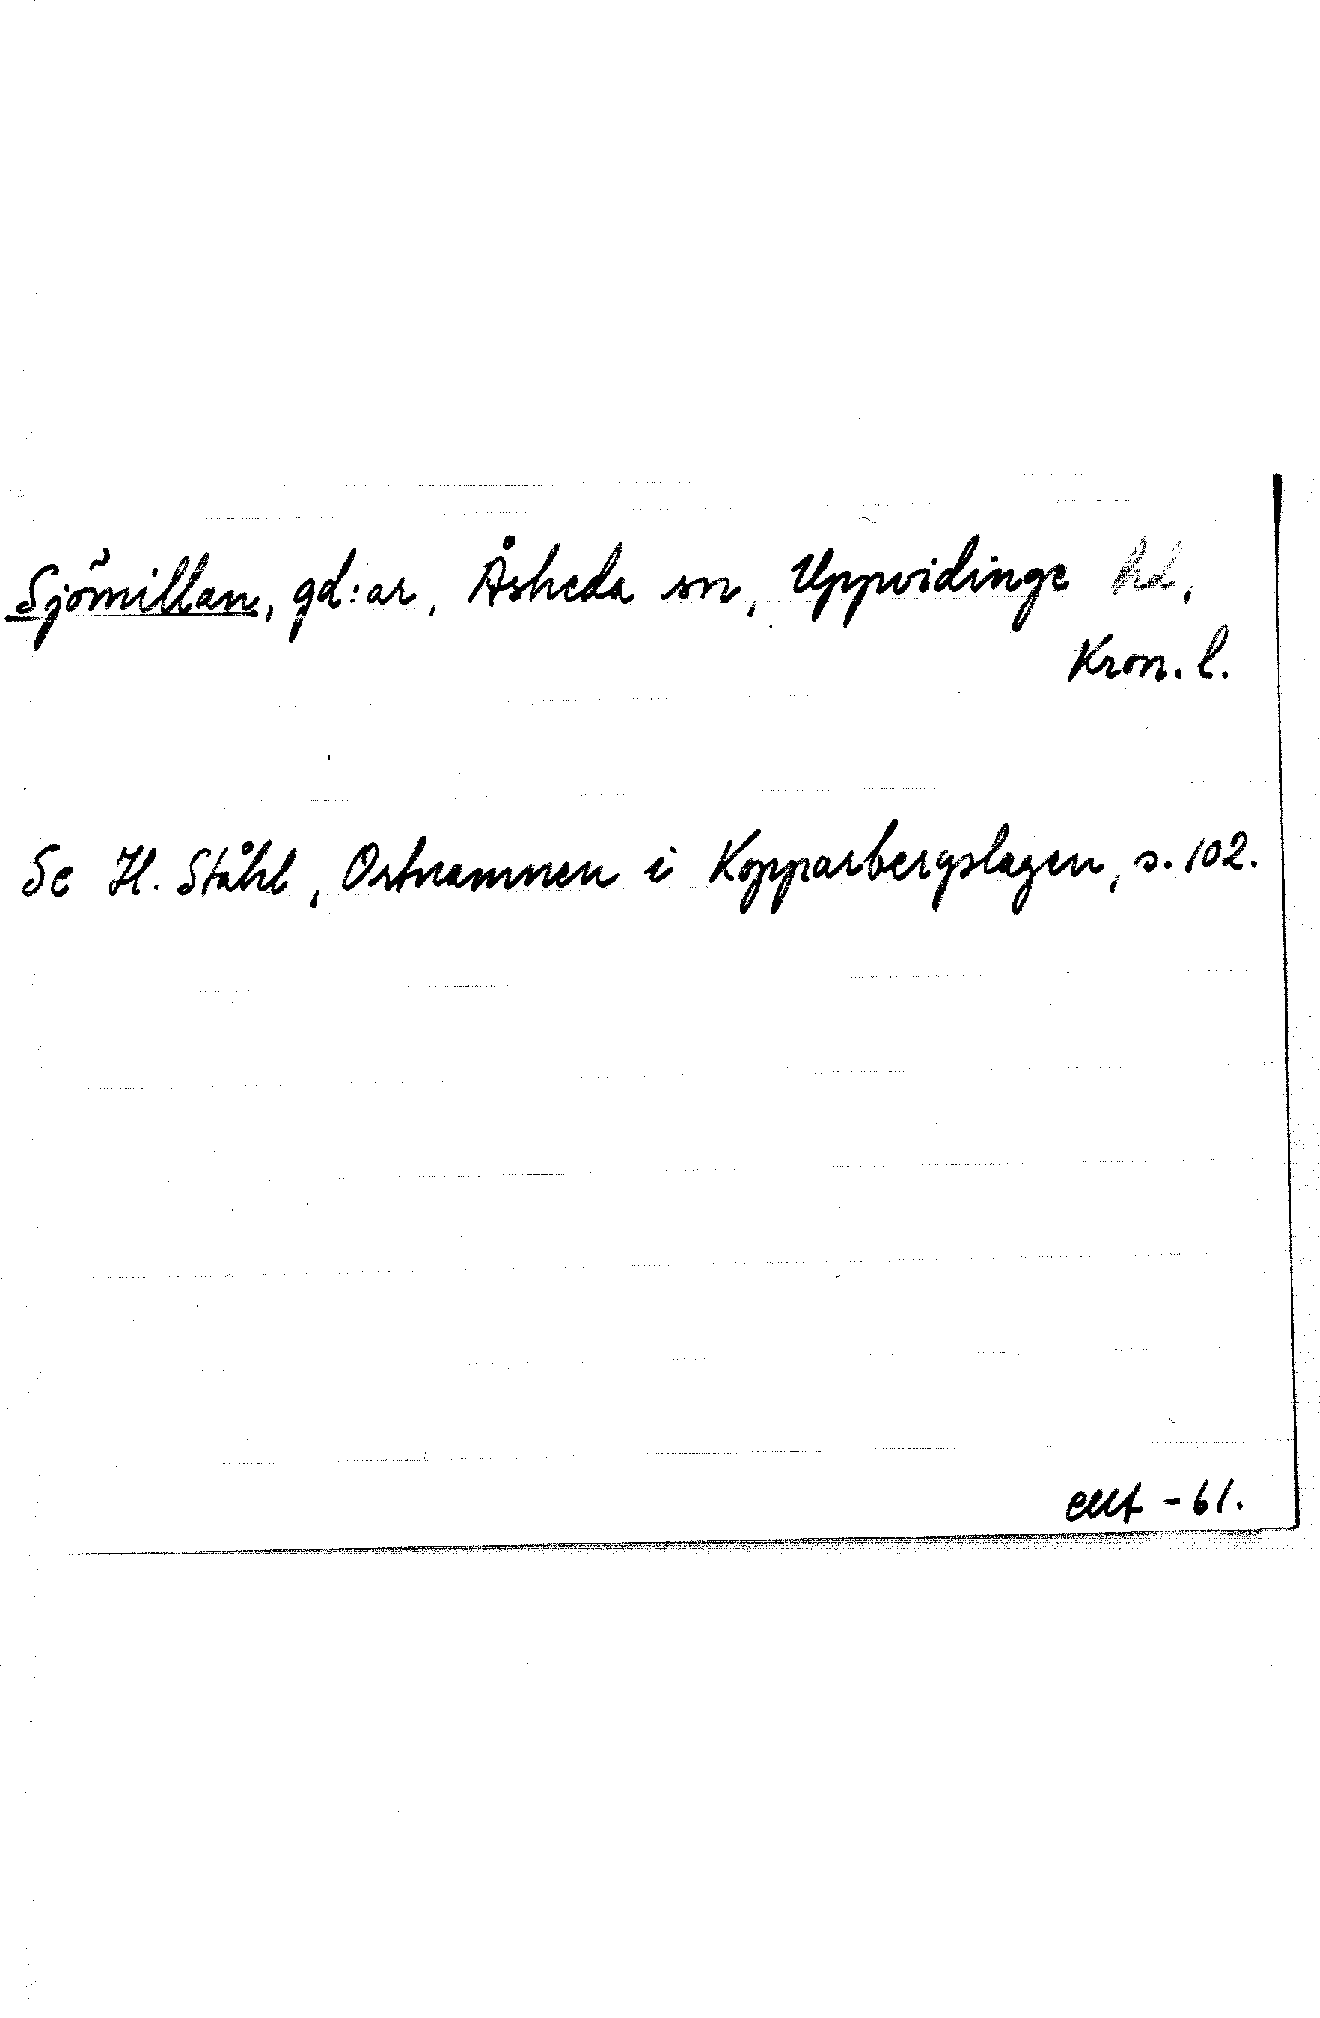 Sjömillan, gd:ar, Åsheda sn, Uppvidinge hd,
Kron. l.
Se H. Ståhl, Ortnamnen i Kopparbergslagen, s. 102.
-61.